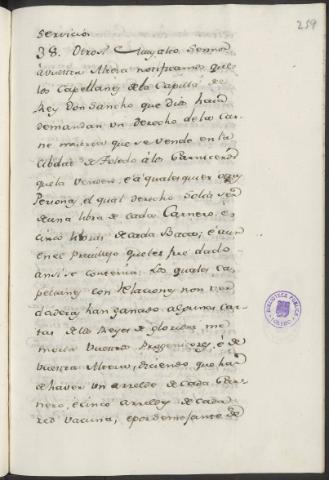 259
servicio.
38. Otrosi Muy altos Señores
á vuestra Alteza notificamos que
los Capellanes de la Capilla de
Rey Don Sancho que Dios haia
demandan un derecho de la Car-
ne muerta que se vende en la
Cibdad de Toledo á los Carniceros
que la venden, é á qualesquier
Persona, el qual derecho solía ser
de una libra de cada Carnero, é
cinco libras de cada Baca, é aun
en el previllejo que les fue dado
ansi se contenia: Los quales ca-
pellanes con Relaciones non ver-
daderas han ganado algunas car-
tas de los Reyes de gloriosa me-
moria vuestros Progenitores, é de
vuestra Alteza, diciendo que han
de haver un arrelde de cada Car-
nero, é cinco arreldes de cada
red vacuna, é por demosante de
BIBLIOTECA PÚBLICA
TOLEDO